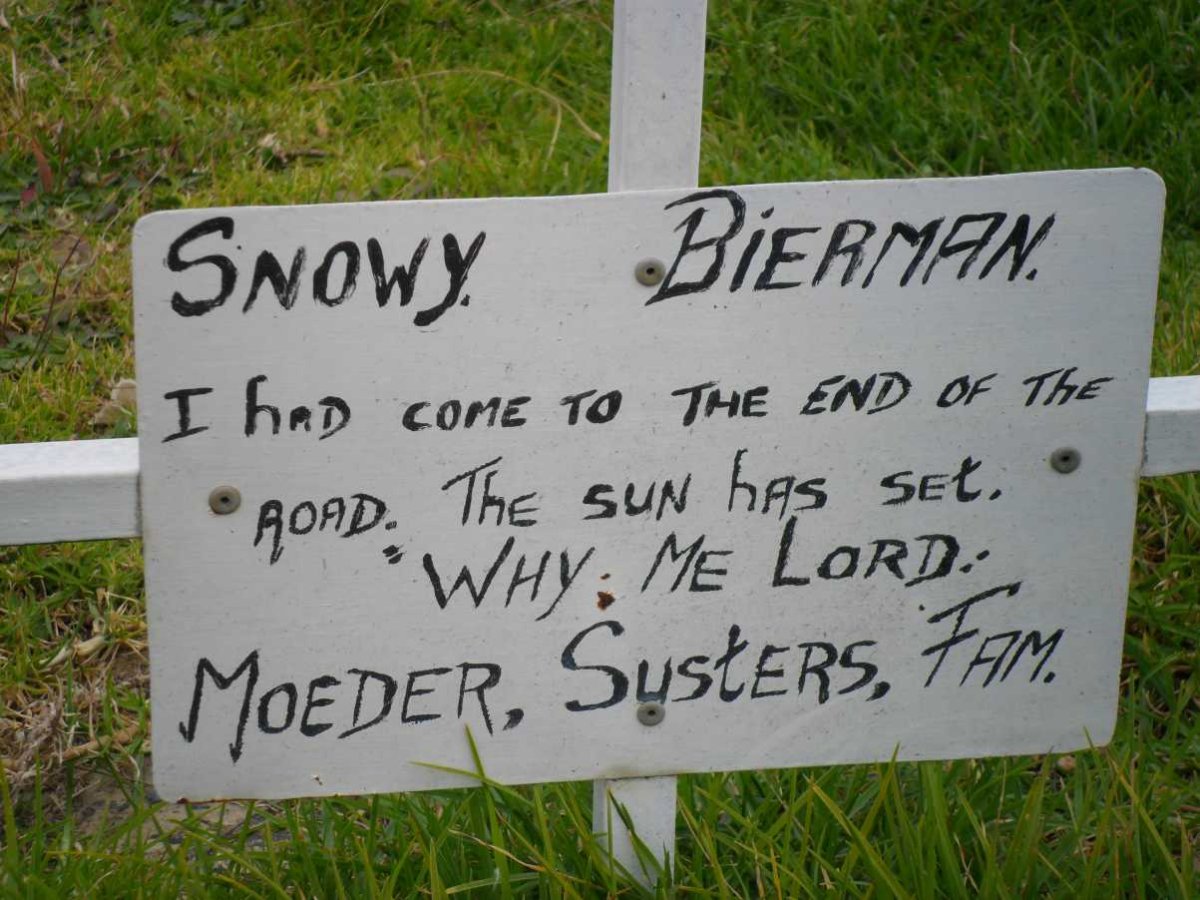 SNOWY. BIERMAN.
I hAD COME TO THE END OF THE
ROAD. The SUN hAS SET.
"WHY ME LORD.
MOEDER, SUSTERS, FAM.